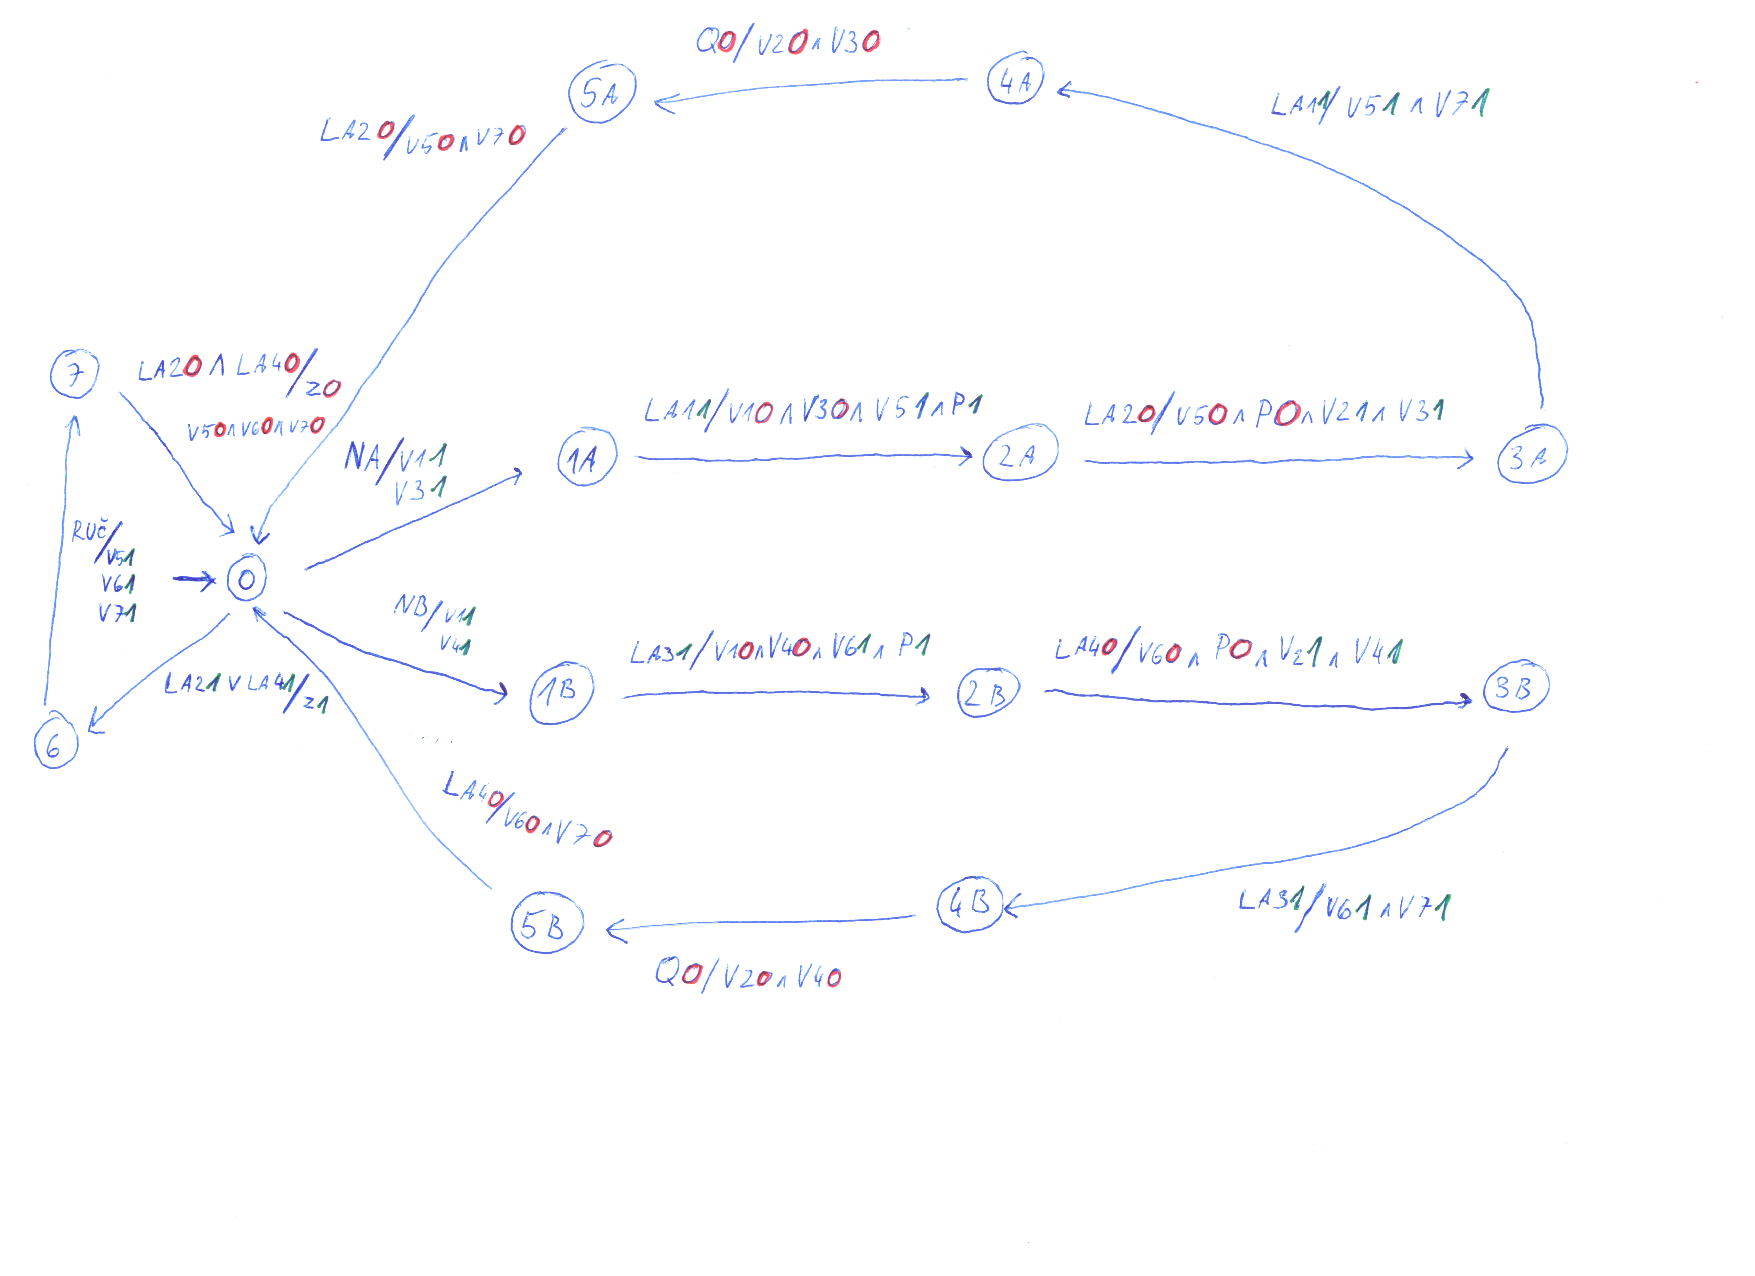 Q0/V20∧V30
5A
4A
LA11/V51∧V71
LA20/V50∧V70
7
LA20∧LA40/Z0
V50∧V60∧V70
NA/V11
V31
1A
LA11/V10∧V30∧V51∧P1
2A
LA20/V50∧P0∧V21∧V31
3A
RUČ/V51
V61
V71
0
NB/V11
V41
1B
LA31/V10∧V40∧V61∧P1
2B
LA40/V60∧P0∧V21∧V41
3B
LA21∨LA41/Z1
6
LA40/V60∧V70
5B
4B
LA31/V61∧V71
Q0/V20∧V40